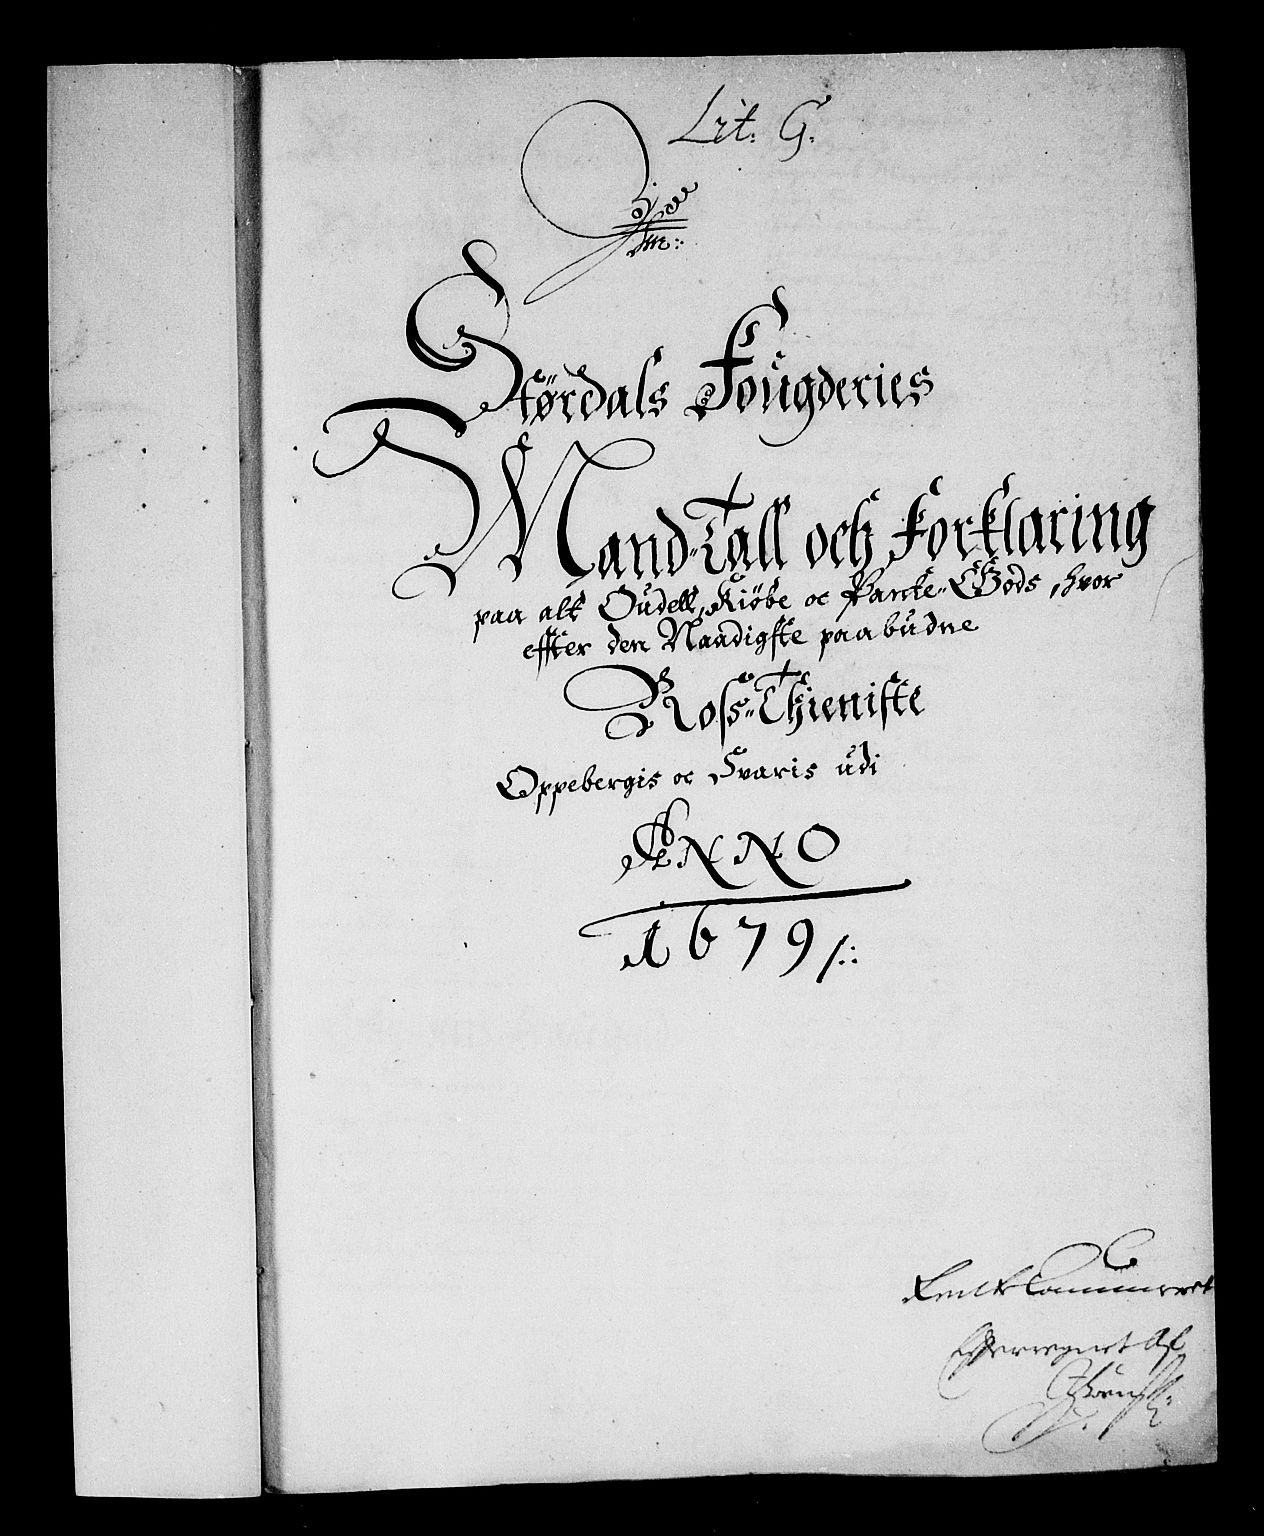 Lit. G.
Størdals Fougderies
Mand-Tall och Forklaring
paa alt Oudell, Kiøbe oc Pante-Gods, hvor
effter den Naadigste paabudne
Ross-Thieniste
Oppebergis oc Svaris udi
ANNO
1679
Rentte Cammeret
Igiennemseet af